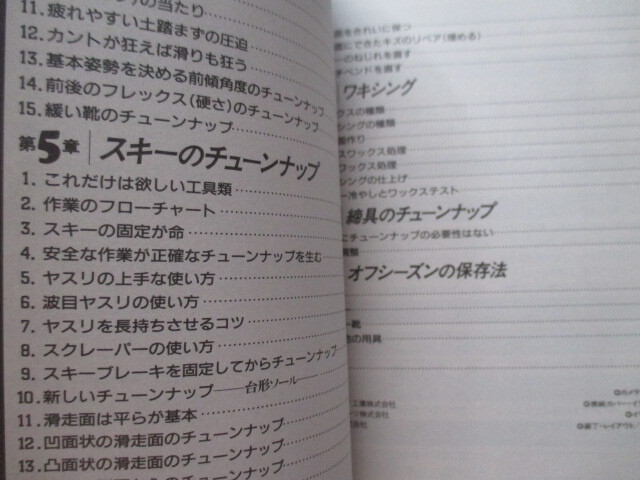 の当たり
11. 疲れやすい土踏まずの圧迫
12. カントが狂えば滑りも狂う
13. 基本姿勢を決める前傾角度のチューンナップ
14. 前後のフレックス(硬さ)のチューンナップ
15. 緩い靴のチューンナップ
第5章 スキーのチューンナップ
1. これだけは欲しい工具類
2. 作業のフローチャート
3. スキーの固定が命
4. 安全な作業が正確なチューンナップを生む
5. ヤスリの上手な使い方
6. 波目ヤスリの使い方
7. ヤスリを長持ちさせるコツ
8. スクレーパーの使い方
9. スキーブレーキを固定してからチューンナップ
10. 新しいチューンナップ——台形ソール
11. 滑走面は平らが基本
12. 凹面状の滑走面のチューンナップ
13. 凸面状の滑走面のチューンナップ
をきれいに保つ
にできたキズのリペア(埋める)
のねじれを直す
ベンドを直す
ワキシング
クスの種類
シングの種類
作り
スワックス処理
ワックス処理
シングの仕上げ
ー冷やしとワックステスト
締具のチューンナップ
チューンナップの必要性はない
調整
オフシーズンの保存法
靴
の用具
工業株式会社
株式会社